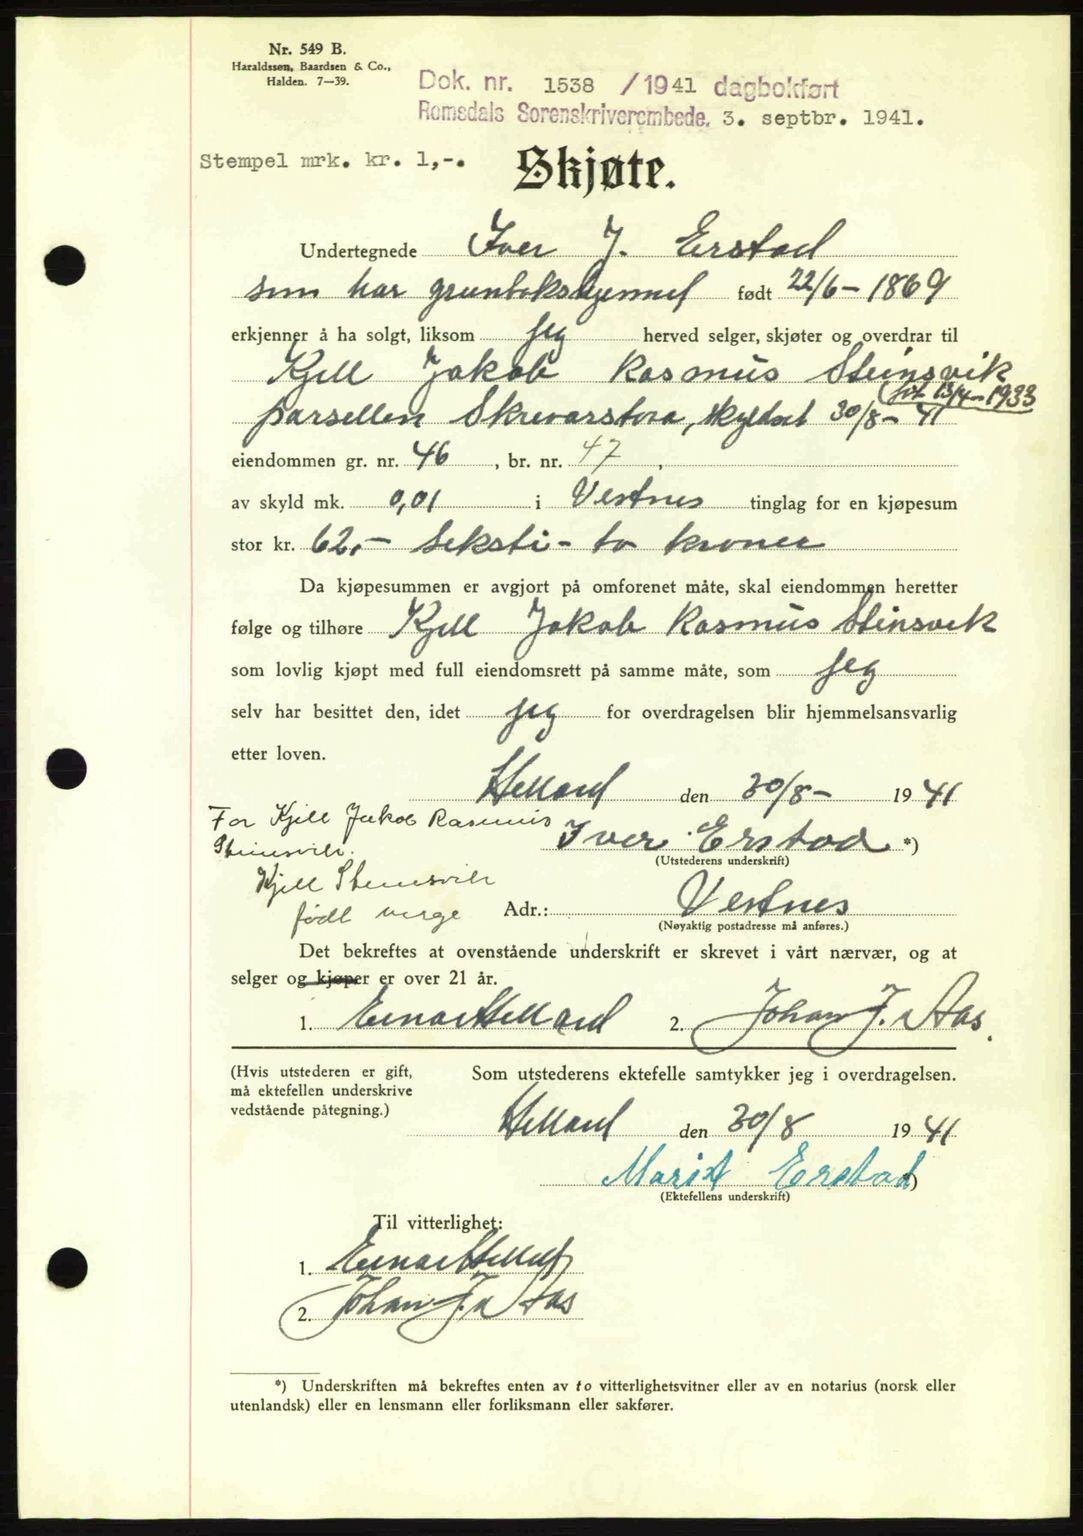 Nr. 549 B.
Haraldssøn, Baardsen & Co.,
Halden. 7—39.
Dok. nr. 1538 /1941 dagbokført
Romsdals Sorenskriverembede, 3. septbr. 1941.
Stempel mrk. kr. 1,-.
Skjøte.
Undertegnede Iver J. Erstad
som har grunbokshjemmel født 22/6 - 1869
erkjenner å ha solgt, liksom jeg herved selger, skjøter og overdrar til
Kjell Jakob Rasmus Steinsvik
(født 13/4-1933
parsellen Skrevarstova, skyldsat 30/8- 41
eiendommen gr. nr. 46, br. nr. 47,
av skyld mk. 0,01 i Vestnes tinglag for en kjøpesum
stor kr. 62,- seksti-to kroner
Da kjøpesummen er avgjort på omforenet måte, skal eiendommen heretter
følge og tilhøre Kjell Jakob Rasmus Steinsvik
som lovlig kjøpt med full eiendomsrett på samme måte, som jeg
selv har besittet den, idet jeg for overdragelsen blir hjemmelsansvarlig
etter loven.
Helland den 30/8- 1941
For Kjell Jakob Rasmus
Steinsvik.
Iver Erstad *)
(Utstederens underskrift)
Kjell Steinsvik
født verge
Adr.: Vestnes
(Nøyaktig postadresse må anføres.)
Det bekreftes at ovenstående underskrift er skrevet i vårt nærvær, og at
selger og kjøper er over 21 år.
1. Einar Helland 2. Johan J. Aas.
(Hvis utstederen er gift,
må ektefellen underskrive
vedstående påtegning.)
Som utstederens ektefelle samtykker jeg i overdragelsen.
Helland den 30/8 1941
Marit Erstad *)
(Ektefellens underskrift)
Til vitterlighet:
1. Einar Helland
2. Johan J. Aas
*) Underskriften må bekreftes enten av to vitterlighetsvitner eller av en notarius (norsk eller
utenlandsk) eller en lensmann eller forliksmann eller sakfører.